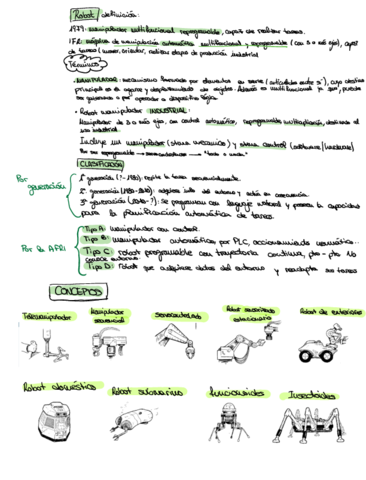 Robot definición:
1979: manipulador multifuncional reprogramable, capaz de realizar tareas.
IFR: máquina de manipulación automática multifuncional y reprogramable (con 3 o más ejes), capaz
de tareas (mover, orientar, realizar etapas de producción industrial
Términos
- MANIPULADOR: mecanismo formado por elementos en serie (articulados entre sí), cuyo objetivo
principal es el agarre y desplazamiento de objetos. Además es multifuncional ya que, puede
ser gobernado o por operador o dispositivo lógico.
- Robot manipulador INDUSTRIAL:
Manipulador de 3 o más ejes, con control automático, reprogramable, multiaplicación, destinado al
uso industrial.
Incluye un manipulador (sistema mecánico) y sistema control (software/hardware)
Por ser reprogramable
CLASIFICACIÓN
Por generación
1ª generación (?-1982): repite la tarea secuencialmente.
2ª generación: adquiere info del entorno y actúa en consecuencia.
3ª generación: se programan con lenguaje natural y poseen la capacidad
para la planificación automática de tareas.
Por la AFRI
Tipo A: manipulador con control.
Tipo B: manipulador automático por PLC, accionamiento neumático...
Tipo C: robot programable con trayectoria continua, pto-pto. No
conoce entorno.
Tipo D: robot que adquiere datos del entorno y readapta su tarea
CONCEPTOS
Telemanipulador
Manipulador secuencial
Servocontrolado
Robot
estacionario
Robot de exteriores
Robot doméstico
Robot submarino
Insectoides